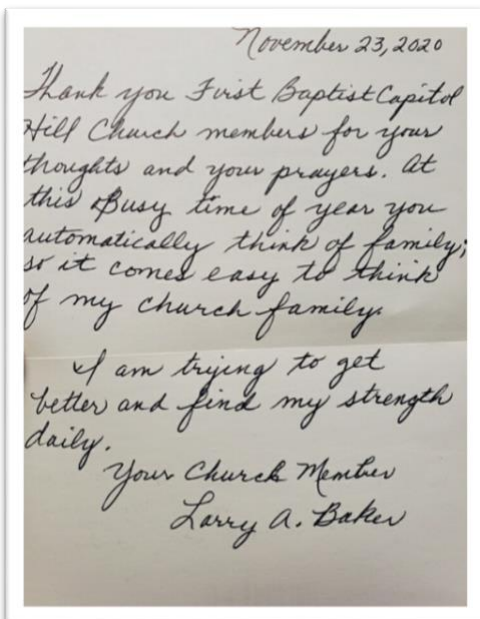 November 23, 2020
Thank you First Baptist Capitol
Hill Church members for your
thoughts and your prayers. At
this Busy time of year you
automatically think of family;
so it comes easy to think
of my church family.
I am trying to get
better and find my strength
daily.
Your Church Member
Larry A. Baker